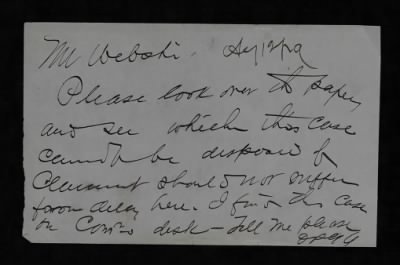 Mr Webster. Aug 12/29
Please look over the papers
and see whether this case
cannot be disposed of
Claimant should not suffer
from delay here. I find this case
on Com'rs desk - Tell me please